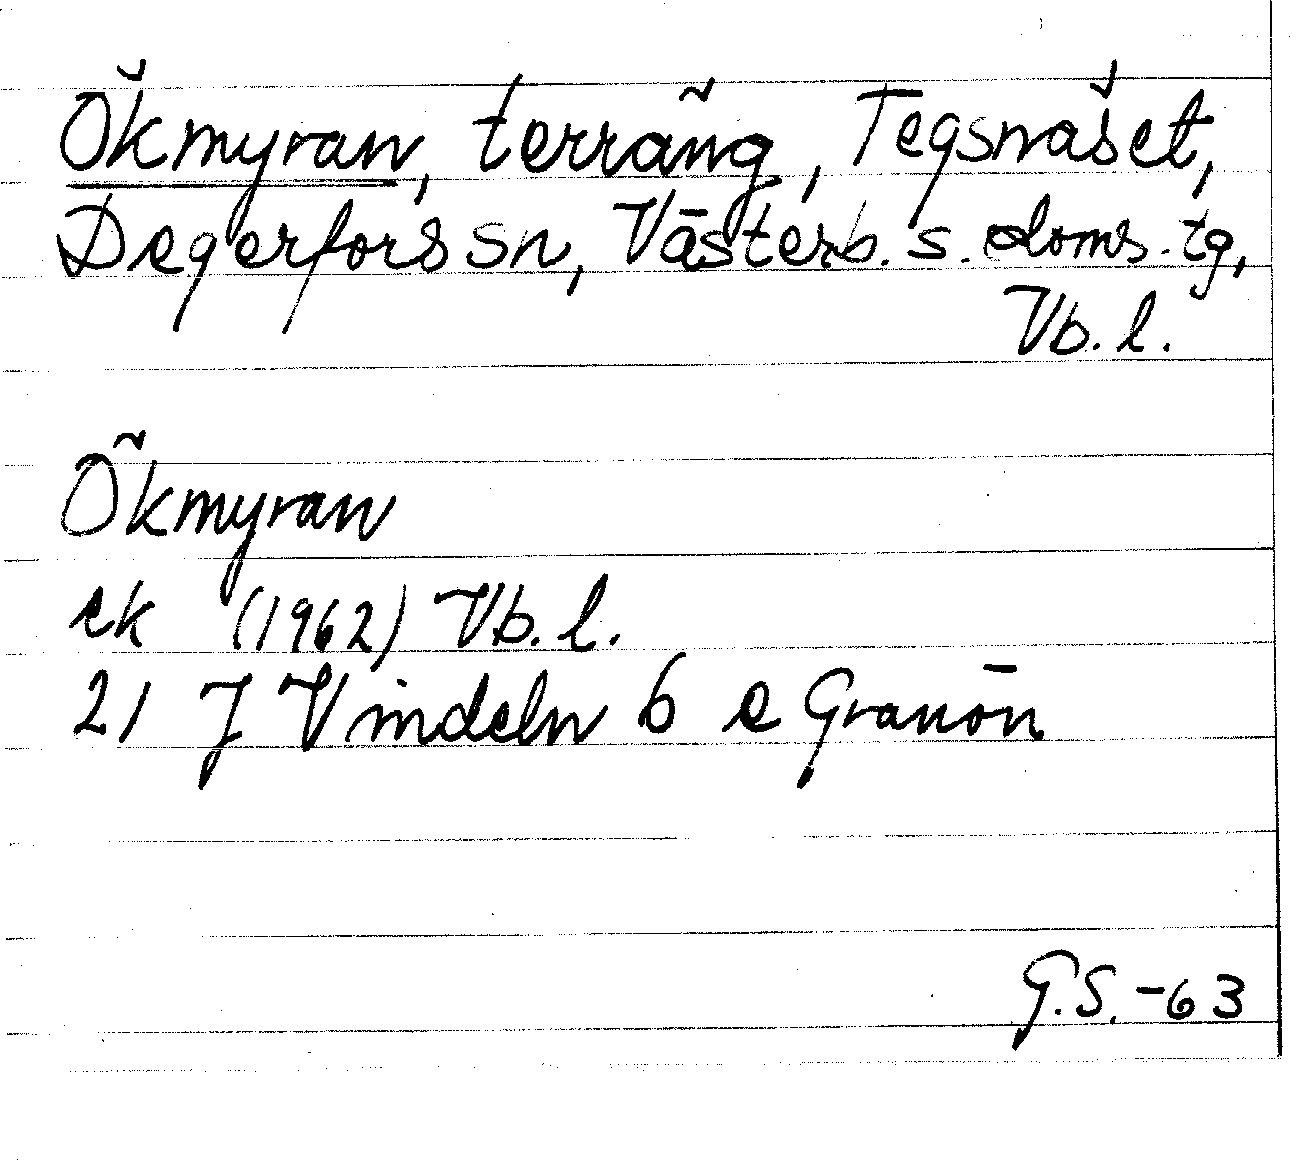 Ökmyran, terräng, Tegsnäset,
Degerfors sn, Västerb. s. doms. tg,
Vb. l.
Ökmyran
ek (1962) Vb. l.
21 J Vindeln 6 e Granön
G.S. -63